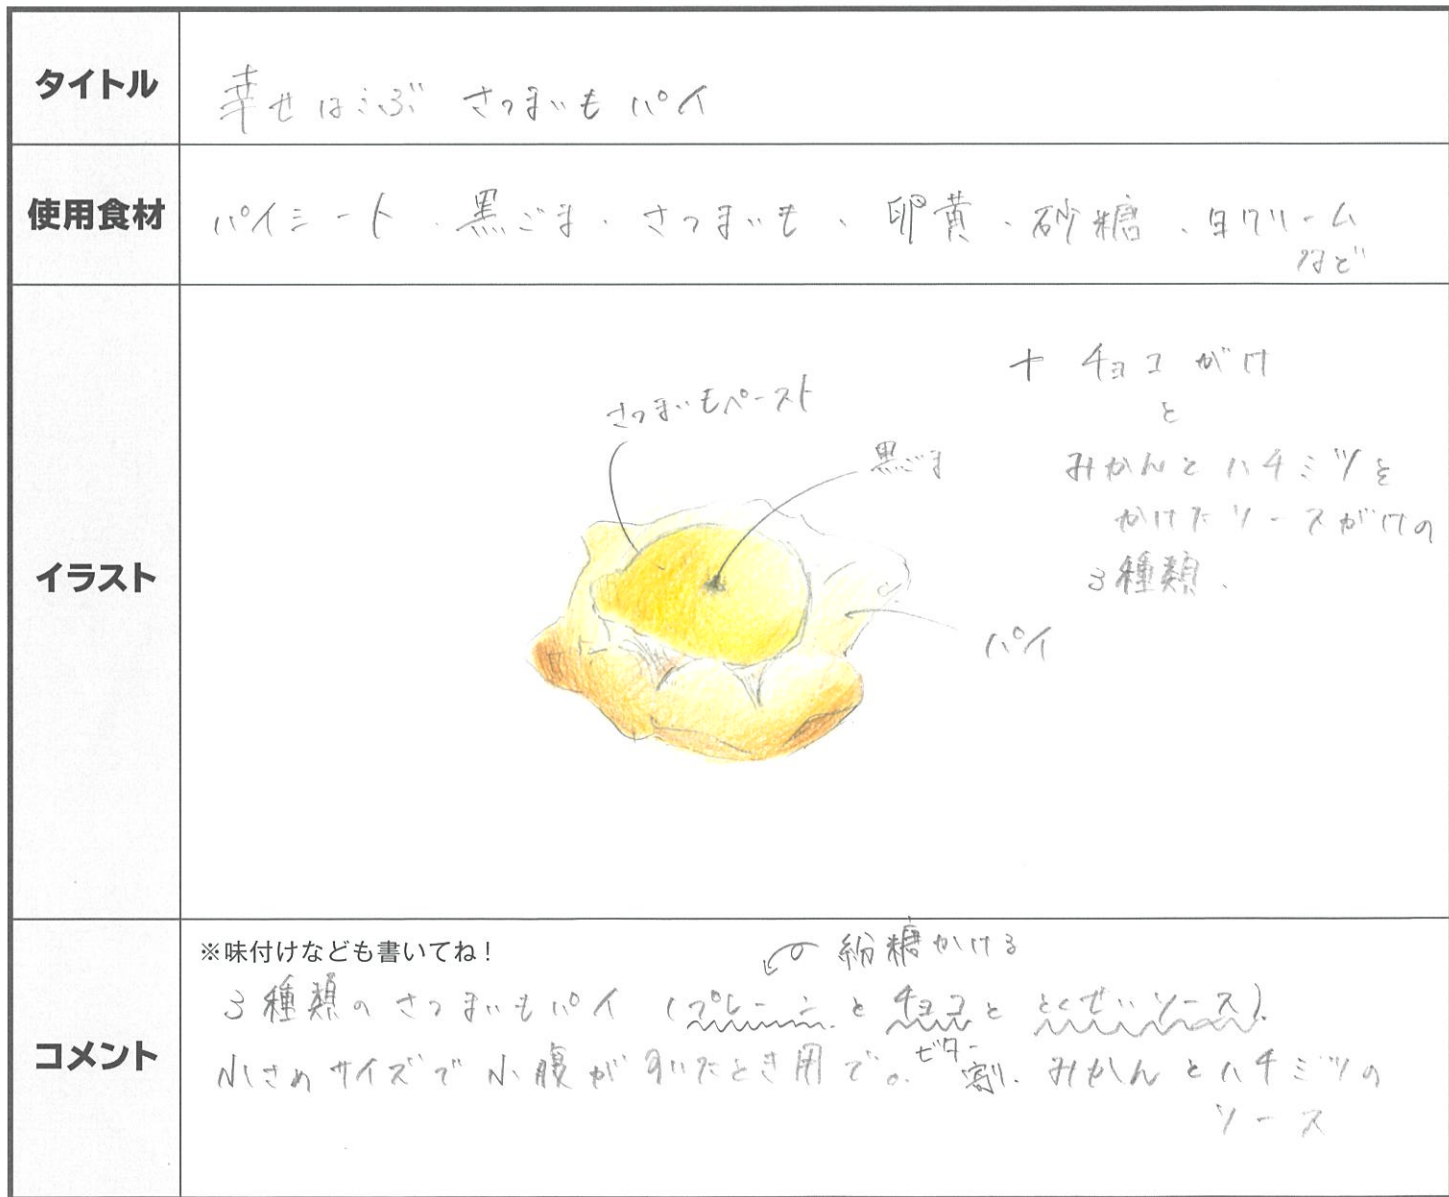 タイトル
幸せはこぶ さつまいもパイ
使用食材
パイシート・黒ごま・さつまいも・卵黄・砂糖・生クリーム
など
イラスト
+ チョコがけ
と
みかんとハチミツを
かけたソースがけの
3種類.
さつまいもペースト
黒ごま
パイ
コメント
※味付けなども書いてね！
粉糖かける
3種類のさつまいもパイ (プレーンとチョコととくせいソース).
小さめサイズで小腹がすいたとき用で。ビター 寄り. みかんとハチミツの
ソース